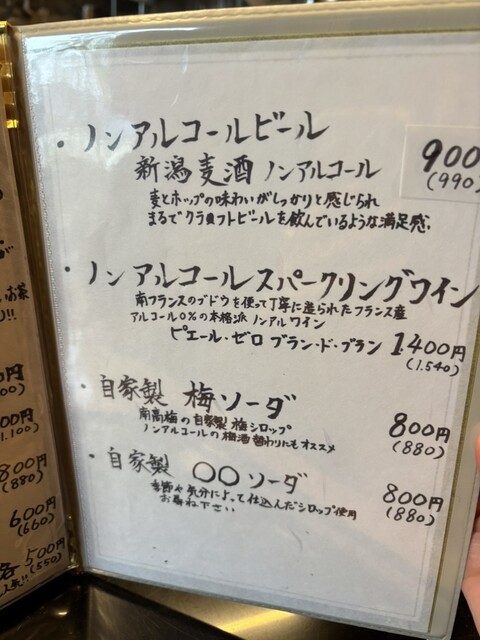 ・ノンアルコールビール
新潟麦酒 ノンアルコール
900
(990)
麦とホップの味わいがしっかりと感じられ
まるでクラフトビールを飲んでいるような満足感。
・ノンアルコールスパークリングワイン
南フランスのブドウを使って丁寧に造られたフランス産
アルコール0%の本格派 ノンアルワイン
ピエール・ゼロ ブラン・ド・ブラン 1.400円
(1.540)
・自家製 梅ソーダ
800円
(880)
南高梅の自家製梅シロップ
ノンアルコールの梅酒替わりにもオススメ
・自家製 〇〇ソーダ
800円
(880)
季節や気分によって仕込んだシロップ使用
お尋ね下さい
お茶
!!
00円
1.100)
800
(880)
600円
(660)
500円
(550)